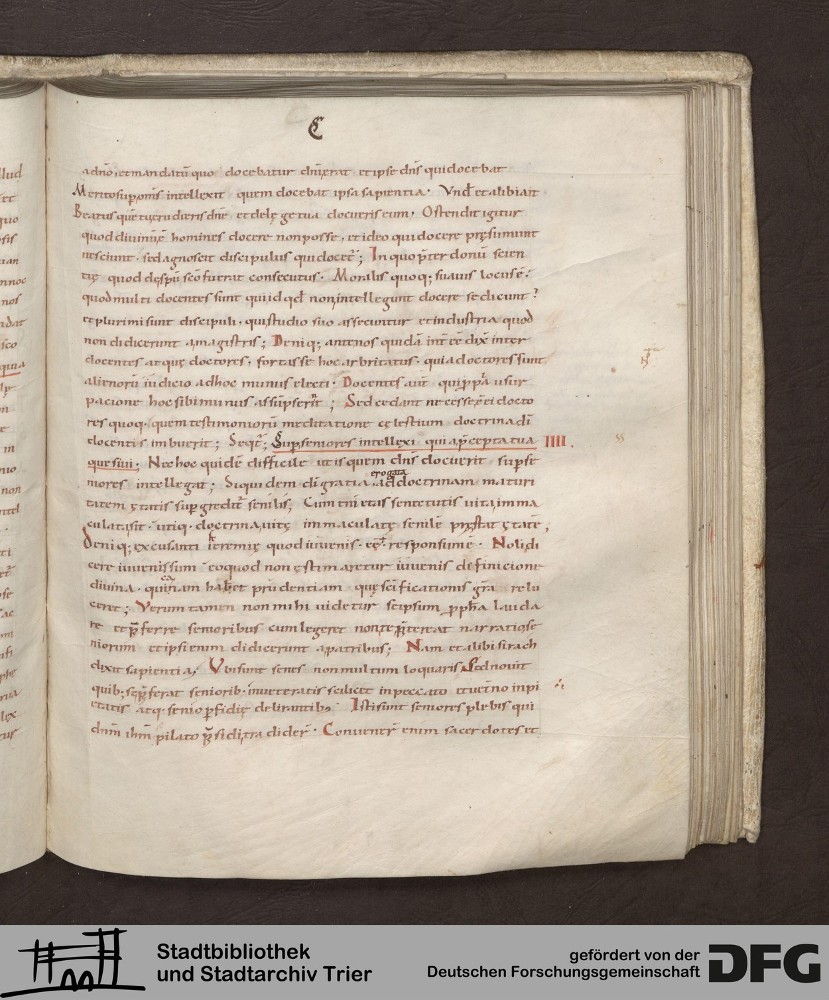 C
a dn̄o, et mandatū quo docebatur
Merito sup om̄s intellexit quem docebat ipsa sapientia. Vnd̄ et alibi ait
Beatus quē tu erudieris dn̄e et de lege tua docueris eum. Ostendit igitur
homines docere non posse, et ideo qui docere pręsumunt
nesciunt. sed agnoscit discipulus qui docet; In quo donū scien
tię quod consecutus. Moralis quoq; suauis locus ē.
quod multi docentes sunt qui id qd non intellegunt docere se dicunt?
et plurimi sunt discipuli, qui studio suo assecuntur et industria quod
non didicerunt a magistris; Deniq; int̄ inter
docentes atque doctores, fortasse hoc arbitratus. quia doctores sunt
alienorū iudicio ad hoc munus electi. Docentes aut̄ usur
patione hoc sibi munus assūpserīt; Sed cedant necesse ē docto
res quoq. quem testimoniorū meditatione cęlestium doctrina dī
docentis imbuerit; Seqt̄; Sup seniores intellexi qui a p̄cepta tua IIII.
quesiui. Nec hoc quidē difficile ut is quem dn̄s docuerit sup se
niores intellegat; Siquidem dī gratia erogata ad doctrinam maturi
tatem ętatis supgredit̄ senilis; Cum enī etas senectutis uita imma
culata sit. utiq. doctrina uitę immaculatę senilē pręstat ętatē;
Deniq; excusanti ieremię quod iuuenis eēt responsum ē. Noli di
cere iuuenis sum eo quod non ęstimaretur iuuenis definicione
diuina. quī etiam haberet prudentiam quę scificationis grā relu
ceret; Verum tamen non mihi uidetur seipsum ppha lauda
re et p̄ferre senioribus cum legeret non te p̄tereat narratio se
niorum et ipsi enim didicerunt a patribus; Nam et alibi sirach
dixit sapientia; Vbi sunt senes non multum loquaris. Sed nouit
quib; se p̄ferat seniorib. inueteratis scilicet in peccato et in pi
etatis atq. senio pfidię delirantib;. Isti sunt seniores plebis qui
dnm ihm pilato p̄sidi tradider̄. Conuener̄ enim sacerdotes et
Stadtbibliothek
und Stadtarchiv Trier
gefördert von der
Deutschen Forschungsgemeinschaft
DFG